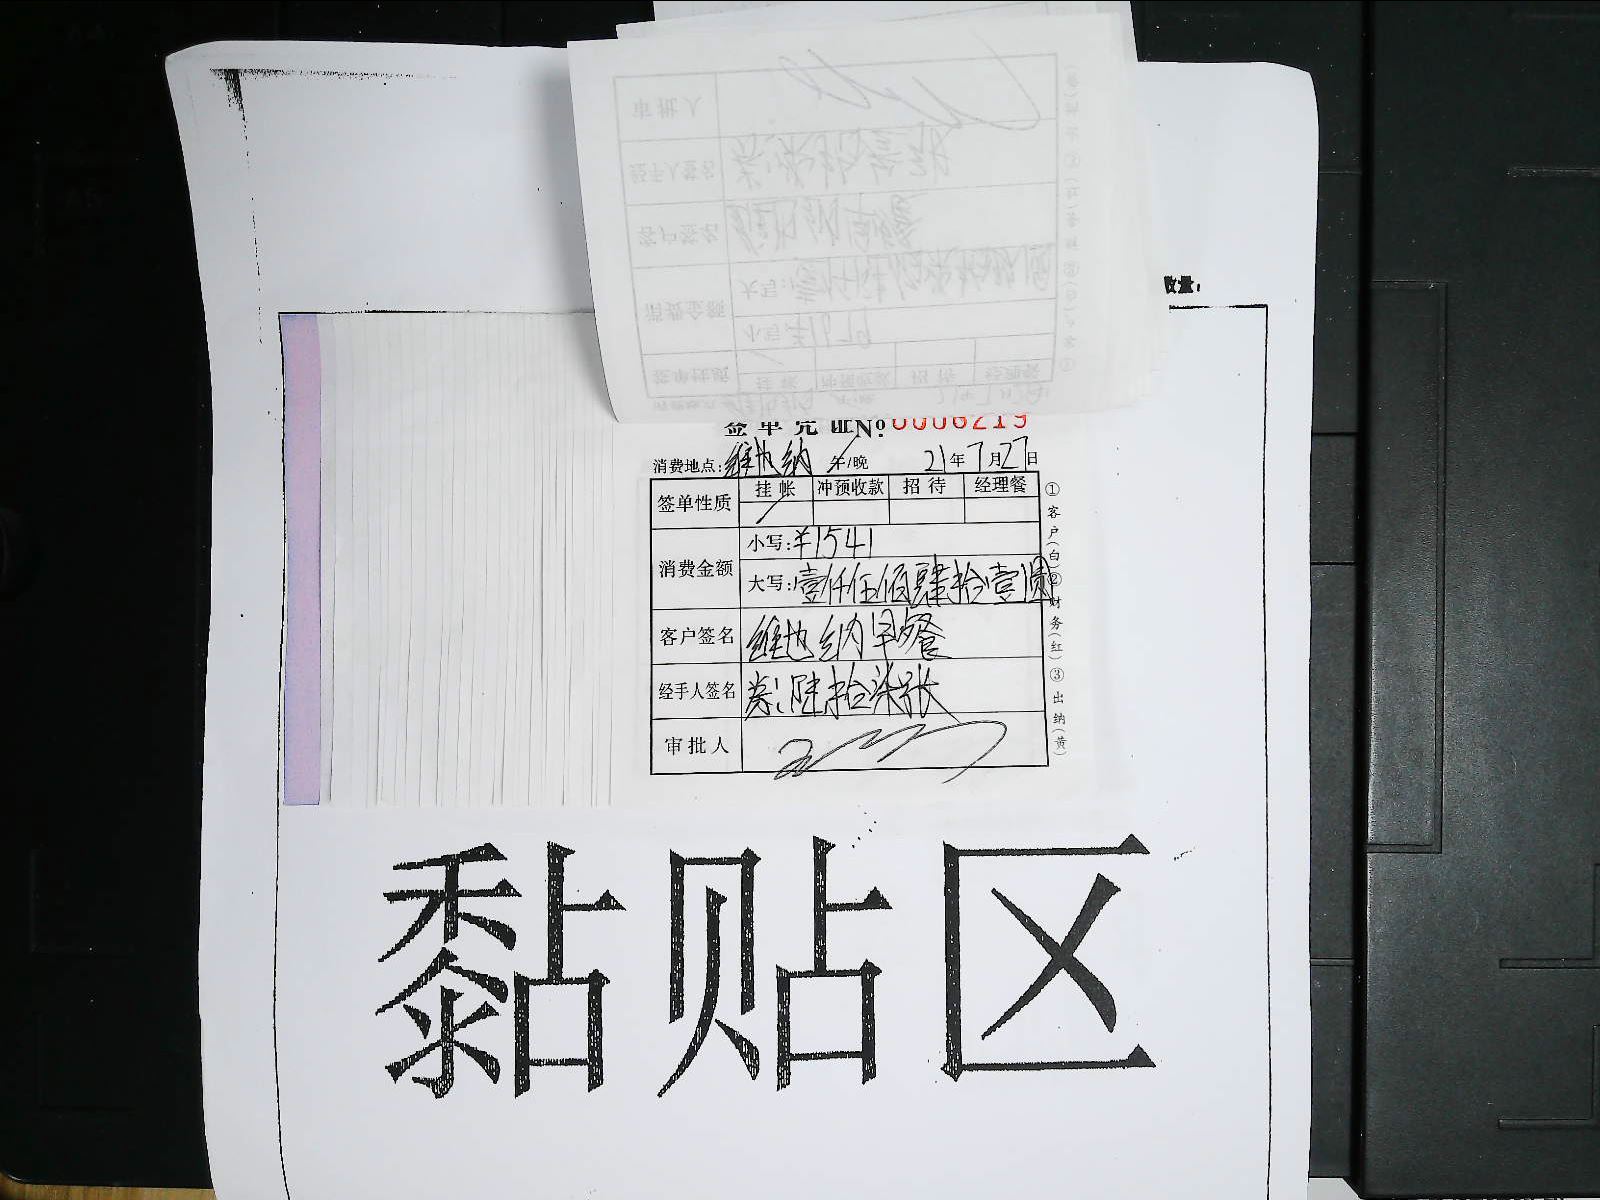 数量:
签单凭证№:0006219
消费地点:维也纳 午/晚 21年7月27日
签单性质 挂帐 冲预收款 招待 经理餐
消费金额 小写:¥1541
大写:壹仟伍佰肆拾壹圆
客户签名 维也纳早餐
经手人签名
审批人
①客户(白)②财务(红)③出纳(黄)
黏贴区